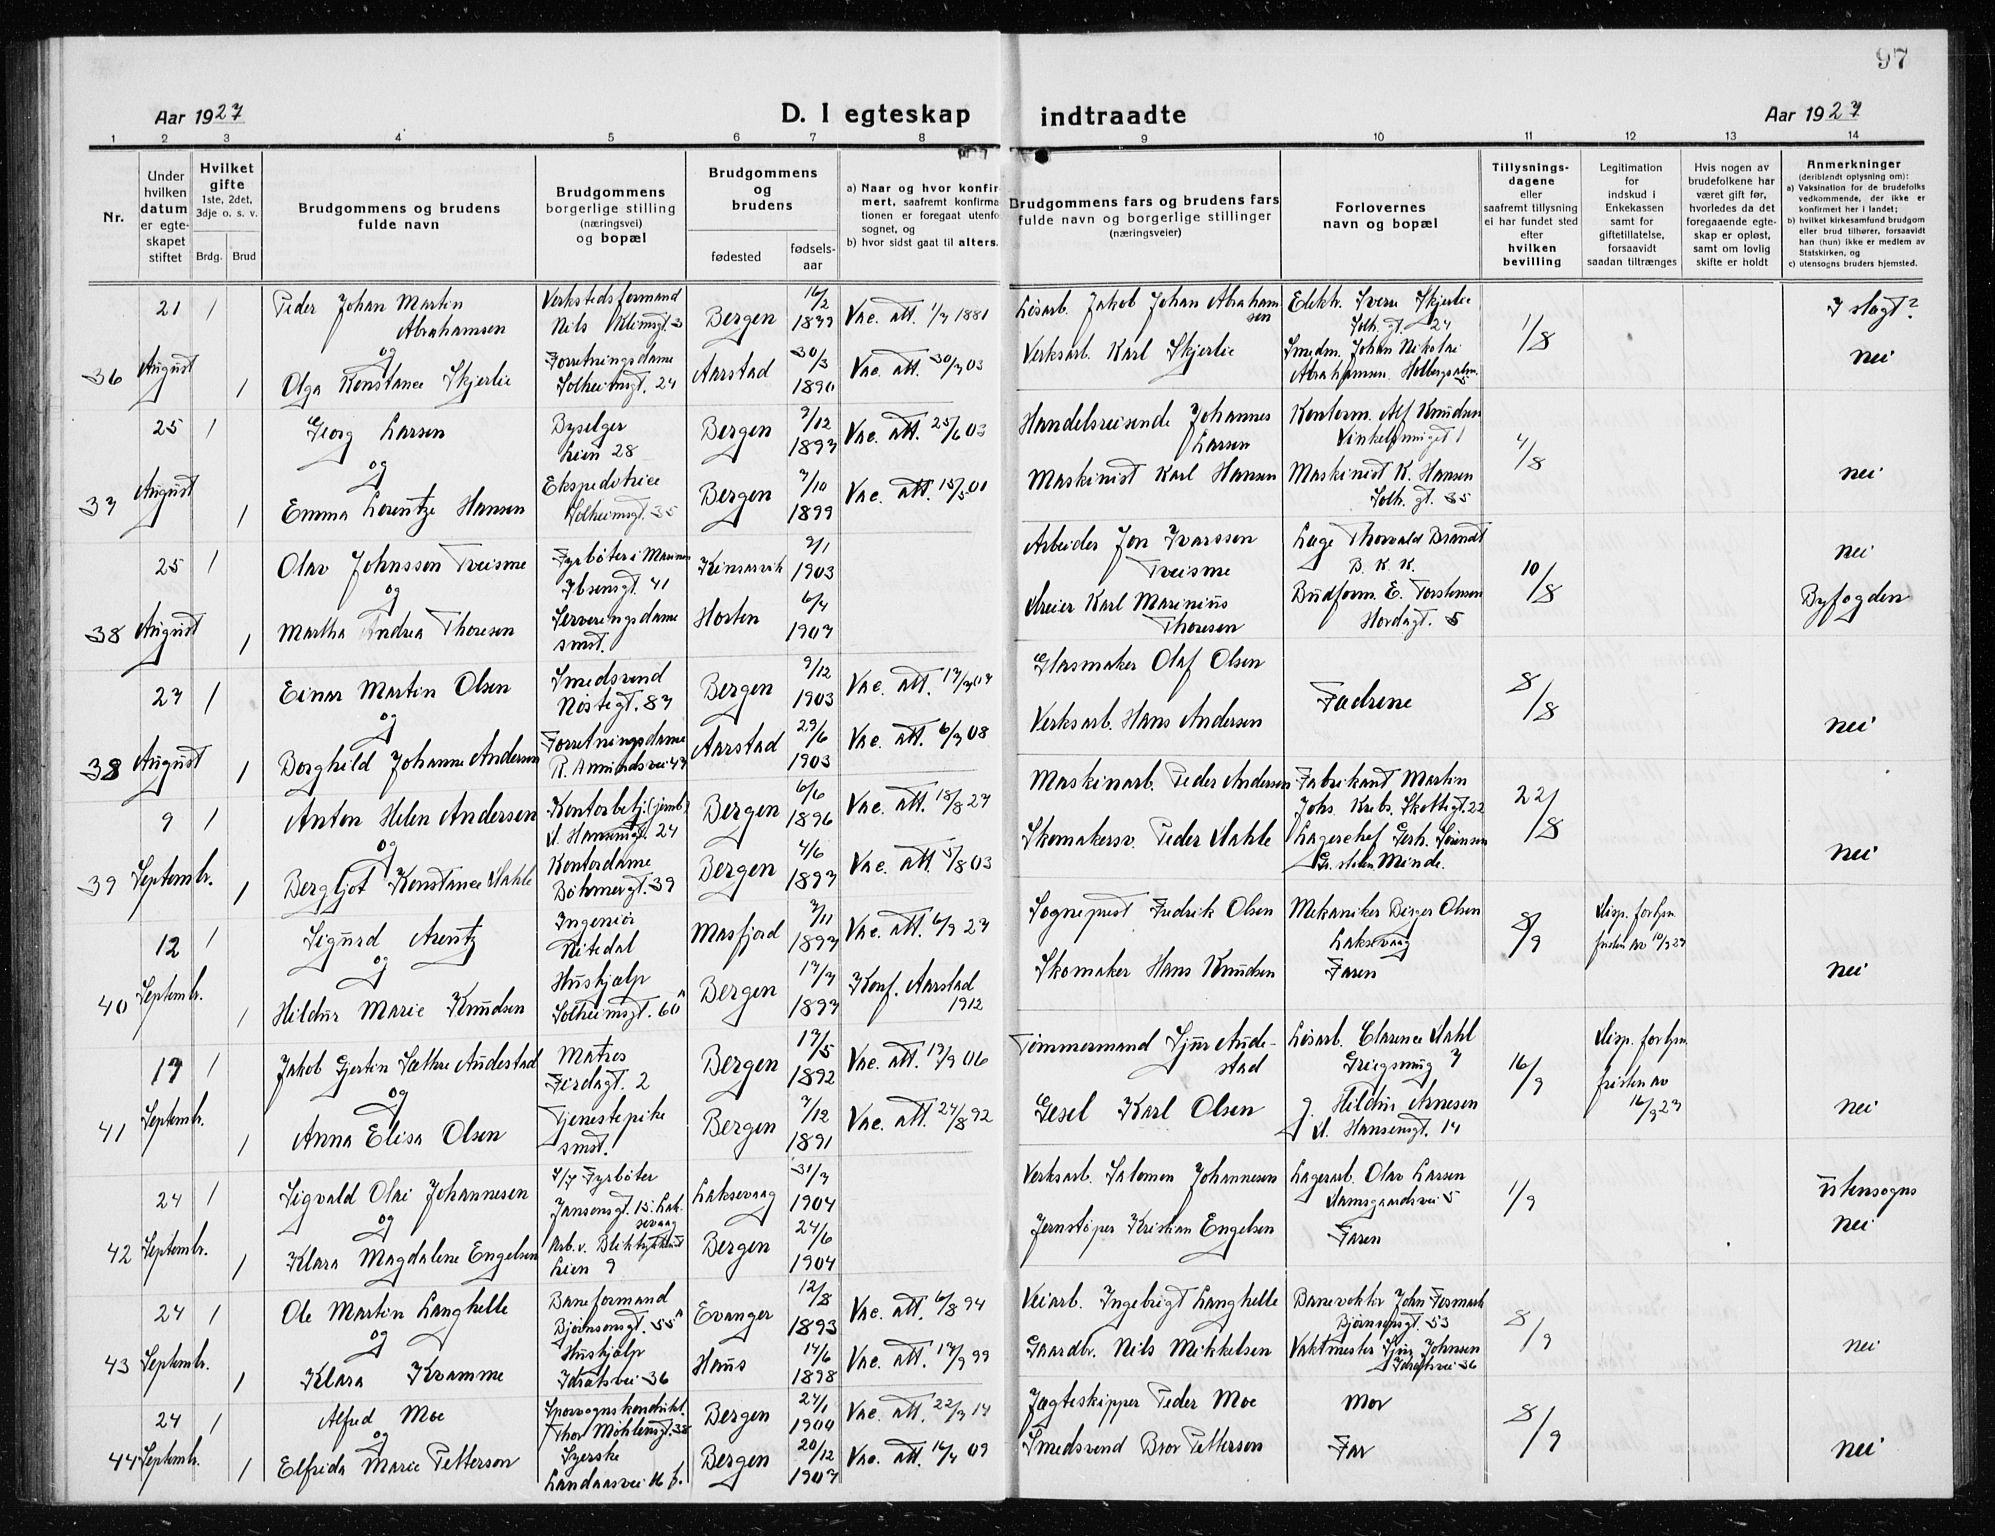 97
Aar 1927
D. I egteskap indtraadte
Aar 1927
1 2 3 4 5 6 7 8 9 10 11 12 13 14
Nr.
Under
hvilken
datum
er egte-
skapet
stiftet
Hvilket
gifte
1ste, 2det,
3dje o. s. v.
Brdg. Brud
Brudgommens og brudens
fulde navn
Brudgommens
borgerlige stilling
(næringsvei)
og bopæl
Brudgommens
og
brudens
fødested
fødsels-
aar
a) Naar og hvor konfir-
mert, saafremt konfirma
tionen er foregaat utenfo
sognet, og
b) hvor sidst gaat til alters.
Brudgommens fars og brudens fars
fulde navn og borgerlige stillinger
(næringsveier)
Forlovernes
navn og bopæl
Tillysnings-
dagene
eller
saafremt tillysning
ei har fundet sted
efter
hvilken
bevilling
Legitimation
for
indskud i
Enkekassen
samt for
giftetillatelse,
forsaavidt
saadan tiltrænges
Hvis nogen av
brudefolkene har
været gift før,
hvorledes da det
foregaaende egte-
skap er opløst,
samt om lovlig
skifte er holdt
Anmerkninger
(deriblandt oplysning om):
a) Vaksination for de brudefolks
vedkommende, der ikke er
konfirmert her i landet;
b) hvilket kirkesamfund brudgom
eller brud tilhører, forsaavidt
han (hun) ikke er medlem av
Statskirken, og
c) utensogns bruders hjemsted.
36
21
August
1
1
Peder Johan Martin
Abrahamsen
og
Olga Konstance Skjerlie
Verkstedsformand
Nils Klimsgt. 3
Forretningsdame
Solheimsgt. 24
Bergen
16/2
1879
Aarstad
30/3
1890
Vac. att. 1/7 1881
Vac. att. 30/7 03
Løsarb. Jakob Johan Abraham
sen
Verksarb. Karl Skjerlie
Elektr. Sverre Skjerlie
Solh. gt. 24
Smedm. Johan Nikolai
Abrahamsen. Holbergsalm.
1/8
I slagt?
nei
37
25
August
1
1
Georg Larsen
og
Emma Lorentze Hansen
Byselger
Lien 28
Ekspeditrice
Solheimsgt. 35
Bergen
7/12
1897
Bergen
7/10
1899
Vac. att. 25/6 03
Vac. att. 15/5 01
Handelsreisende Johannes
Larsen
Maskinist Karl Hansen
Kontorm. Alf Knudsen
Vinkelsmuget 1
Maskinist K. Hansen
Solh. gt. 35
4/8
nei
38
25
August
1
1
Olav Johnsson Tveisme
og
Martha Andrea Thoresen
Fyrbøter i Marinen
Ibsensgt. 41
Serveringsdame
smst.
Kinsarvik
9/1
1903
Horten
6/4
1907
Arbeider Jon Ivarssen
Tveisme
Dreier Karl Marinius
Thoresen
Lage Thorvald Brandt
B. K. K.
Budform. E. Torstensen
Hordagt. 5
10/8
nei
Byfogden
38
27
August
1
1
Einar Martin Olsen
og
Borghild Johanne Andersen
Smedsvend
Nøstegt. 87
Forretningsdame
R. Amundsvei 47
Bergen
9/12
1903
Aarstad
29/6
1903
Vac. att. 17/7 07
Vac. att. 6/7 08
Glasmaker Olaf Olsen
Verksarb. Hans Andersen
Fædrene
8/8
nei
39
9
Septembr.
1
1
Anton Helen Andersen
og
Bergljot Konstance Dahle
Kontorbetj. (jernb.)
D. Hansensgt. 24
Kontordame
Bøhmergt. 39
Bergen
6/6
1896
Bergen
4/6
1897
Vac. att. 18/8 27
Vac. att. 5/8 03
Maskinarb. Peder Andersen
Skomakersv. Peder Dahle
Fabrikant Martin
Johs. Krebs. Skottegt. 22
Lagerchef Gerh. Sørensen
Minde.
22/8
nei
40
12
Septembr.
1
1
Sigurd Arentz
og
Hildur Marie Knudsen
Ingeniør
Nitedal
Hushjælp
Solheimsgt. 60
Masfjord
7/11
1897
Bergen
17/7
1897
Vac. att. 6/9 27
Konf. Aarstad
1912
Sogneprest Fredrik Olsen
Skomaker Hans Knudsen
Mekaniker Birger Olsen
Laksevaag
Faren
8/9
Disp. for lysn.
fristen av 10/9 27
nei
41
17
Septembr.
1
1
Jakob Gjertin Sæthre Audestad
og
Anna Elisa Olsen
Matros
Ferdagt. 2
Tjenestepike
smst.
Bergen
17/5
1892
Bergen
7/12
1891
Vac. att. 17/9 06
Vac. att. 27/8 92
Tømmermand Sjur Aude-
stad
Gesel Karl Olsen
Løsarb. Clarence Dahl
Griegsmug 7
g. Hildur Arnesen
D. Hansensgt. 14
16/9
Disp. for lysn.
fristen av
16/9 27
nei
42
24
Septembr.
1
1
Sigvald Olai Johannesen
og
Klara Magdalene Engelsen
Fyrbøter
Jansensgt. 15. Lak-
sevaag
Lien 9
Laksevaag
31/7
1904
Bergen
24/6
1904
Verksarb. Salomon Johannesen
Jernstøper Kristian Engelsen
Lagerarb. Olav Larsen
Damsgaardsvei 5
Faren
1/9
Utensogns
nei
43
24
Septembr.
1
1
Ole Martin Langhelle
og
Klara Kvamme
Baneformand
Bjørnsonsgt. 55
Hushjælp
Idrætsvei 36
Evanger
12/8
1893
Haus
14/6
1898
Vac. att. 6/8 94
Vac. att. 17/9 99
Veiarb. Ingebrigt Langhelle
Gaardbr. Nils Mikkelsen
Banevokter John Fosmark
Bjørnsonsgt. 53
Vaktmester Sjur Johnsen
Idrætsvei 36
8/9
nei
44
24
Septembr.
1
1
Alfred Moe
og
Elfrida Marie Petterson
Sporvognskonduktør.
Thor Møhlensgt. 38
Syerske
Landaasvei 16 b.
Bergen
27/1
1900
Bergen
20/12
1907
Vac. att. 22/7 14
Vac. att. 16/7 09
Jægteskipper Peder Moe
Smedsvend Bror Petterson
Mor
Far
8/9
nei